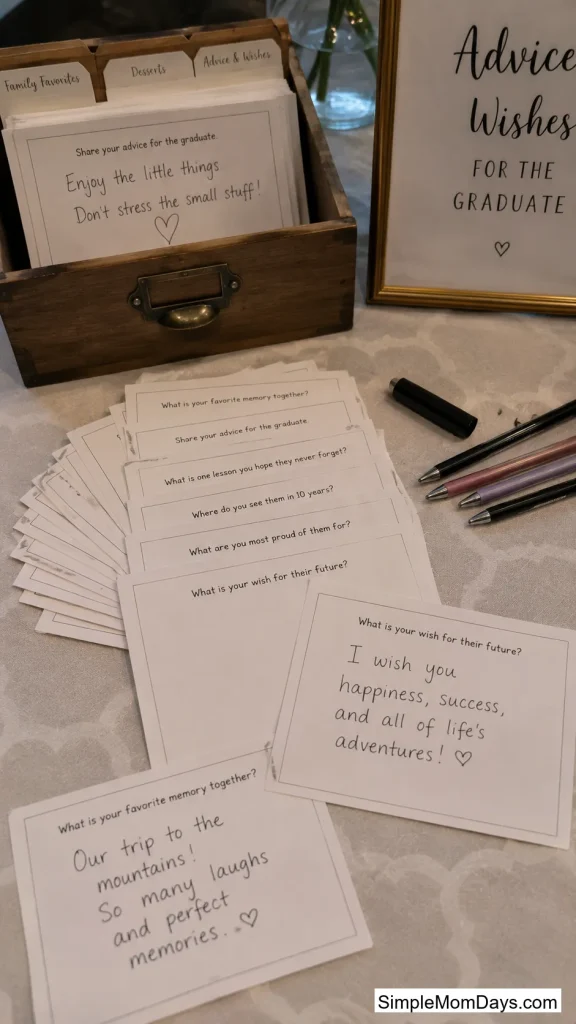 Family Favorites
Desserts
Advice & Wishes
Share your advice for the graduate.
Enjoy the little things
Don't stress the small stuff!
Advice
Wishes
FOR THE
GRADUATE
What is your favorite memory together?
Share your advice for the graduate
What is one lesson you hope they never forget?
Where do you see them in 10 years?
What are you most proud of them for?
What is your wish for their future?
What is your wish for their future?
I wish you
happiness, success,
and all of life's
adventures! ♡
What is your favorite memory together?
Our trip to the
mountains!
So many laughs
and perfect
memories... ♡
SimpleMomDays.com